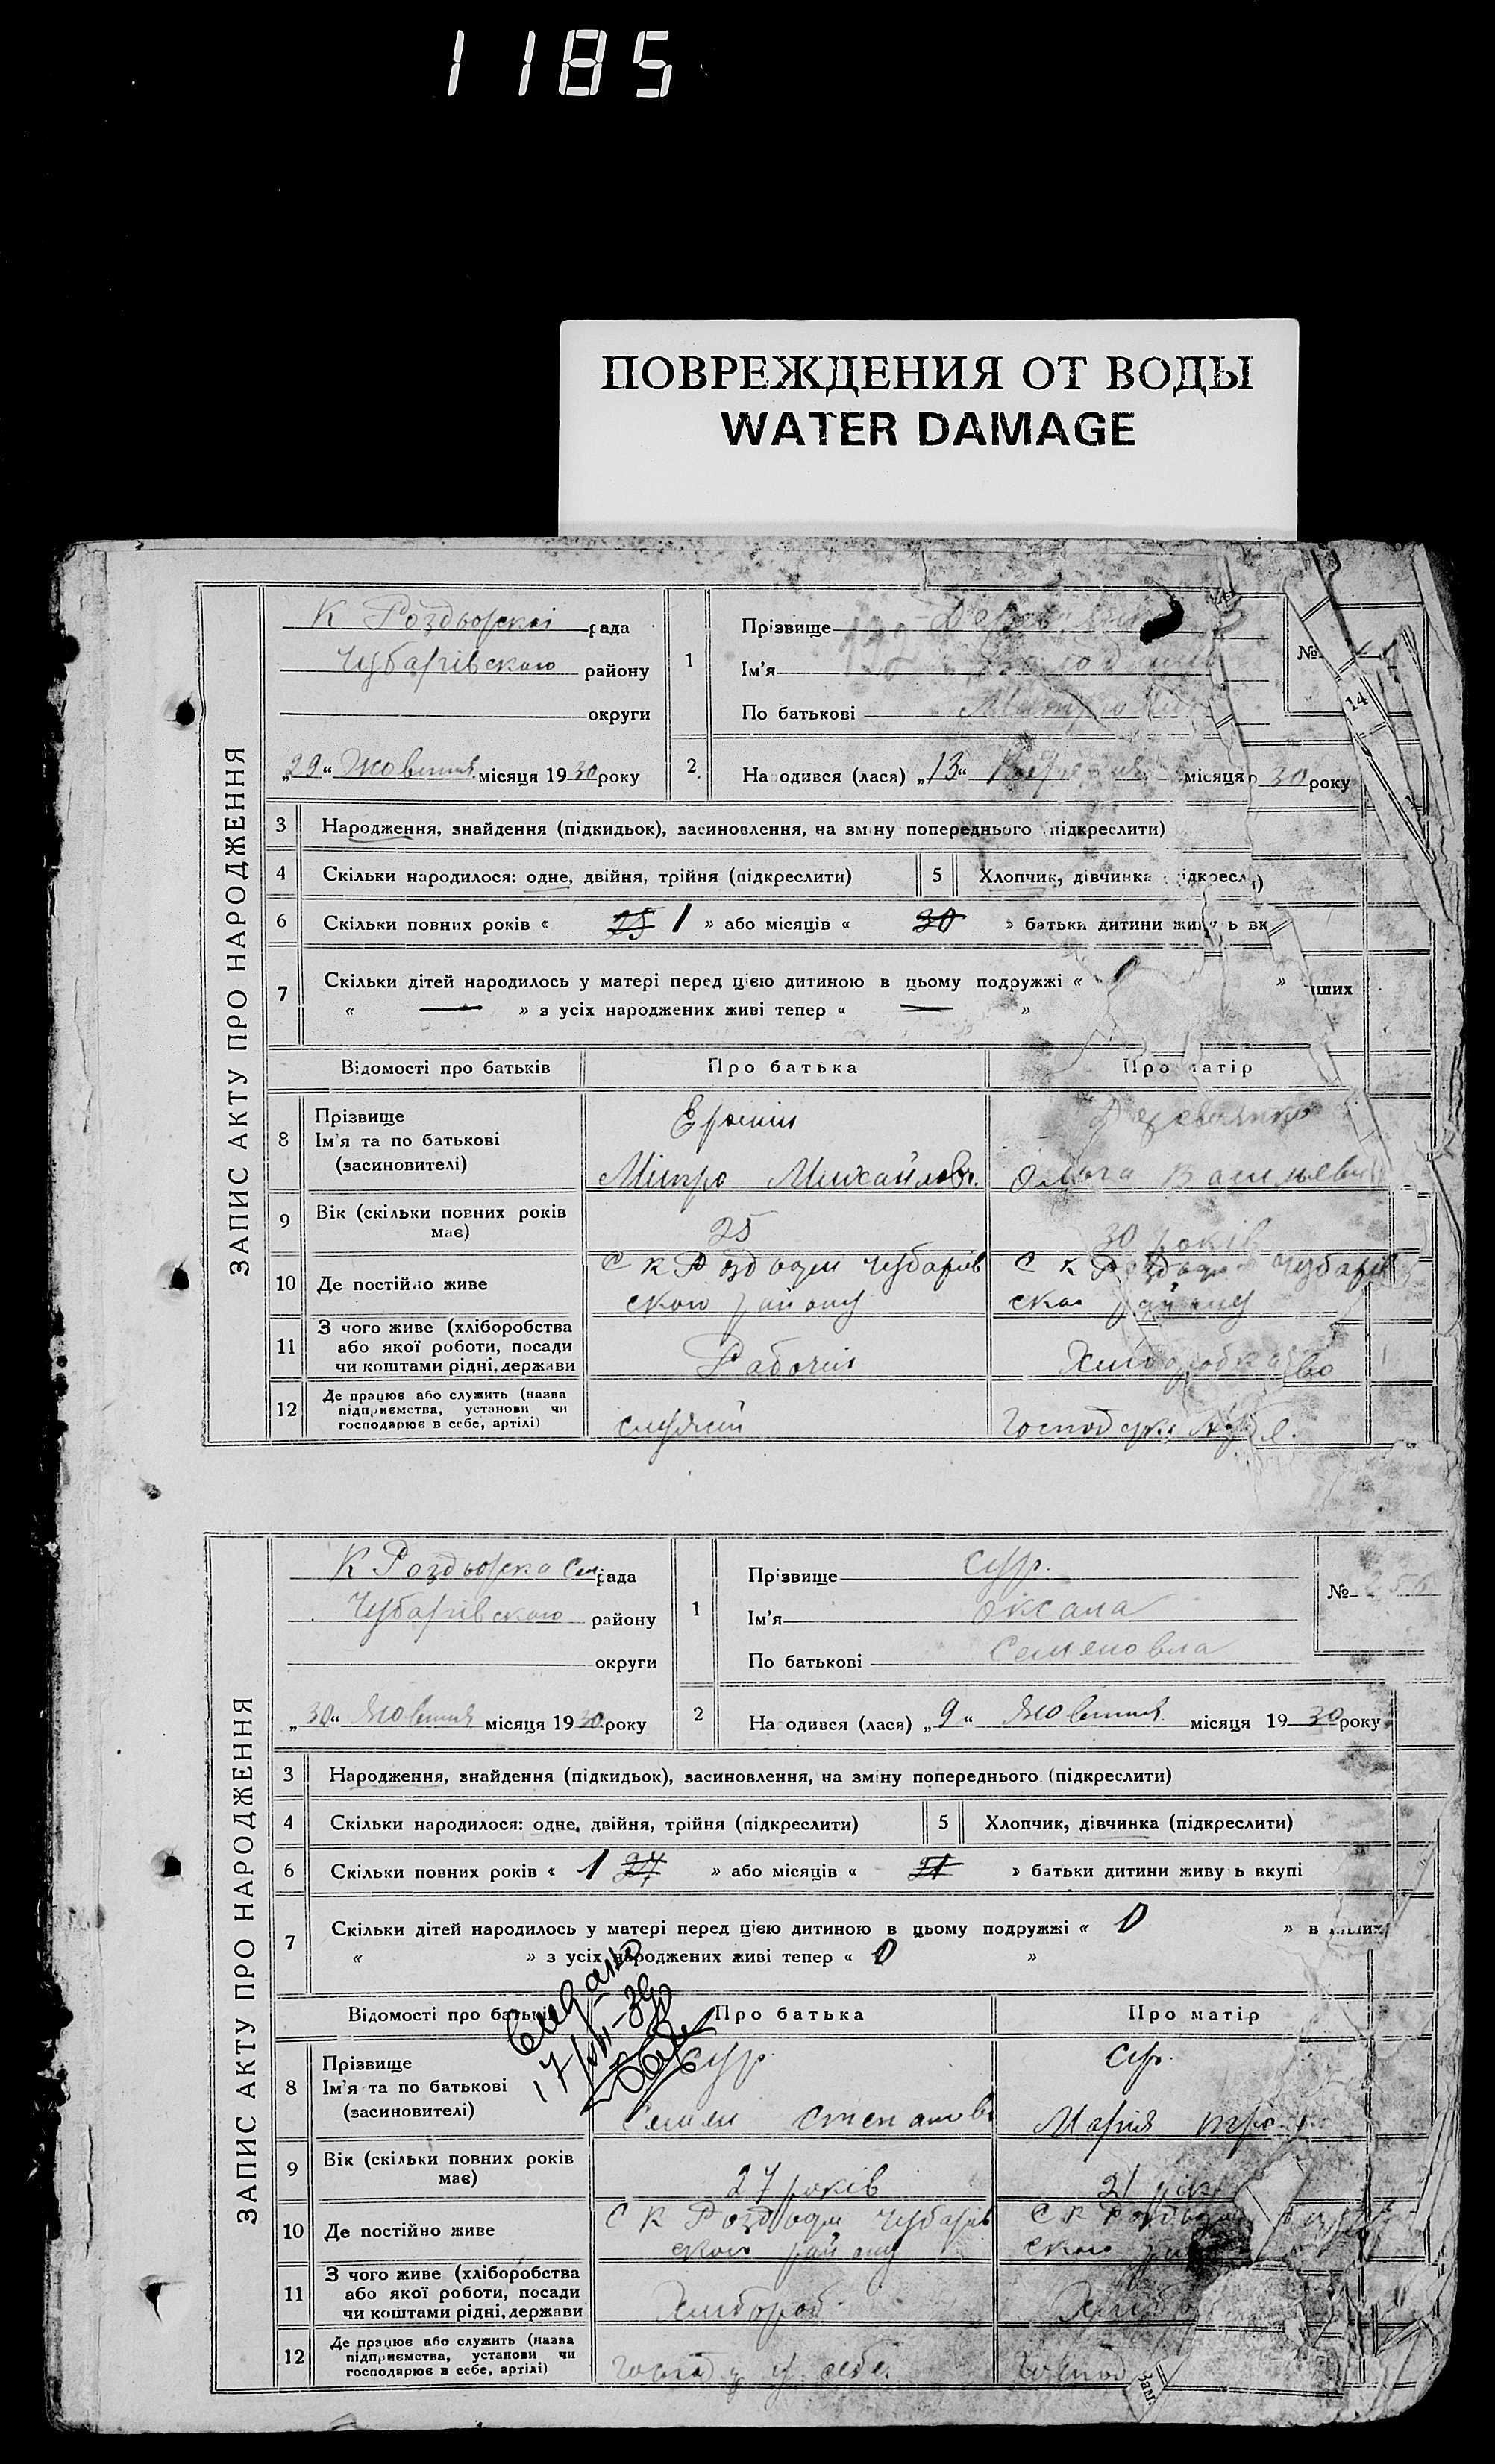 1185
ПОВРЕЖДЕНИЯ ОТ ВОДЫ
WATER DAMAGE
ЗАПИС АКТУ ПРО НАРОДЖЕННЯ
К Роздьорскої рада
Чубарівского району
округи
„29“ Жовтня місяця 1930 року
1
Прізвище
Ім'я
По батькові
№
14
2
Народився (лася) „13“ місяця 30 року
3 Народження, знайдення (підкидьок), засиновлення, на зміну попереднього (підкреслити)
4 Скільки народилося: одне, двійня, трійня (підкреслити)
5 Хлопчик, дівчинка
6 Скільки повних років « 25 1 » або місяців « 30 » батьки дитини живуть вк
7 Скільки дітей народилось у матері перед цією дитиною в цьому подружжі « » інших
« — » з усіх народжених живі тепер « — »
Відомості про батьків Про батька Про матір
8 Прізвище
Ім'я та по батькові
(засиновителі)
Мітро Михайлов.
Деревянко
Ольга Васильевн
9 Вік (скільки повних років має)
25
30 років
10 Де постійно живе
С К Роздори Чубарів
ского району
С К Роздори Чубарів
ского району
11 З чого живе (хліборобства або якої роботи, посади чи коштами рідні, держави
Рабочий
12 Де працює або служить (назва підприємства, установи чи господарює в себе, артілі)
ЗАПИС АКТУ ПРО НАРОДЖЕННЯ
К Роздьорска Сел рада
Чубарівского району
округи
„30“ Жовтня місяця 1930 року
1
Прізвище Сур.
Ім'я Оксана
По батькові Семеновна
№ 256
2
Народився (лася) „9“ Жовтня місяця 1930 року
3 Народження, знайдення (підкидьок), засиновлення, на зміну попереднього (підкреслити)
4 Скільки народилося: одне, двійня, трійня (підкреслити)
5 Хлопчик, дівчинка (підкреслити)
6 Скільки повних років « 1 27 » або місяців « 21 » батьки дитини живуть вкупі
7 Скільки дітей народилось у матері перед цією дитиною в цьому подружжі « 0 » в інших
« » з усіх народжених живі тепер « 0 »
Відомості про батьків Про батька Про матір
8 Прізвище
Ім'я та по батькові
(засиновителі)
Сур.
Семен Степанов
Сур.
Мария
9 Вік (скільки повних років має)
27 років
21 рік
10 Де постійно живе
С К Роздори Чубарів
ского району
С К Роздори
ского
11 З чого живе (хліборобства або якої роботи, посади чи коштами рідні, держави
Хлібороб
12 Де працює або служить (назва підприємства, установи чи господарює в себе, артілі)
у себе.